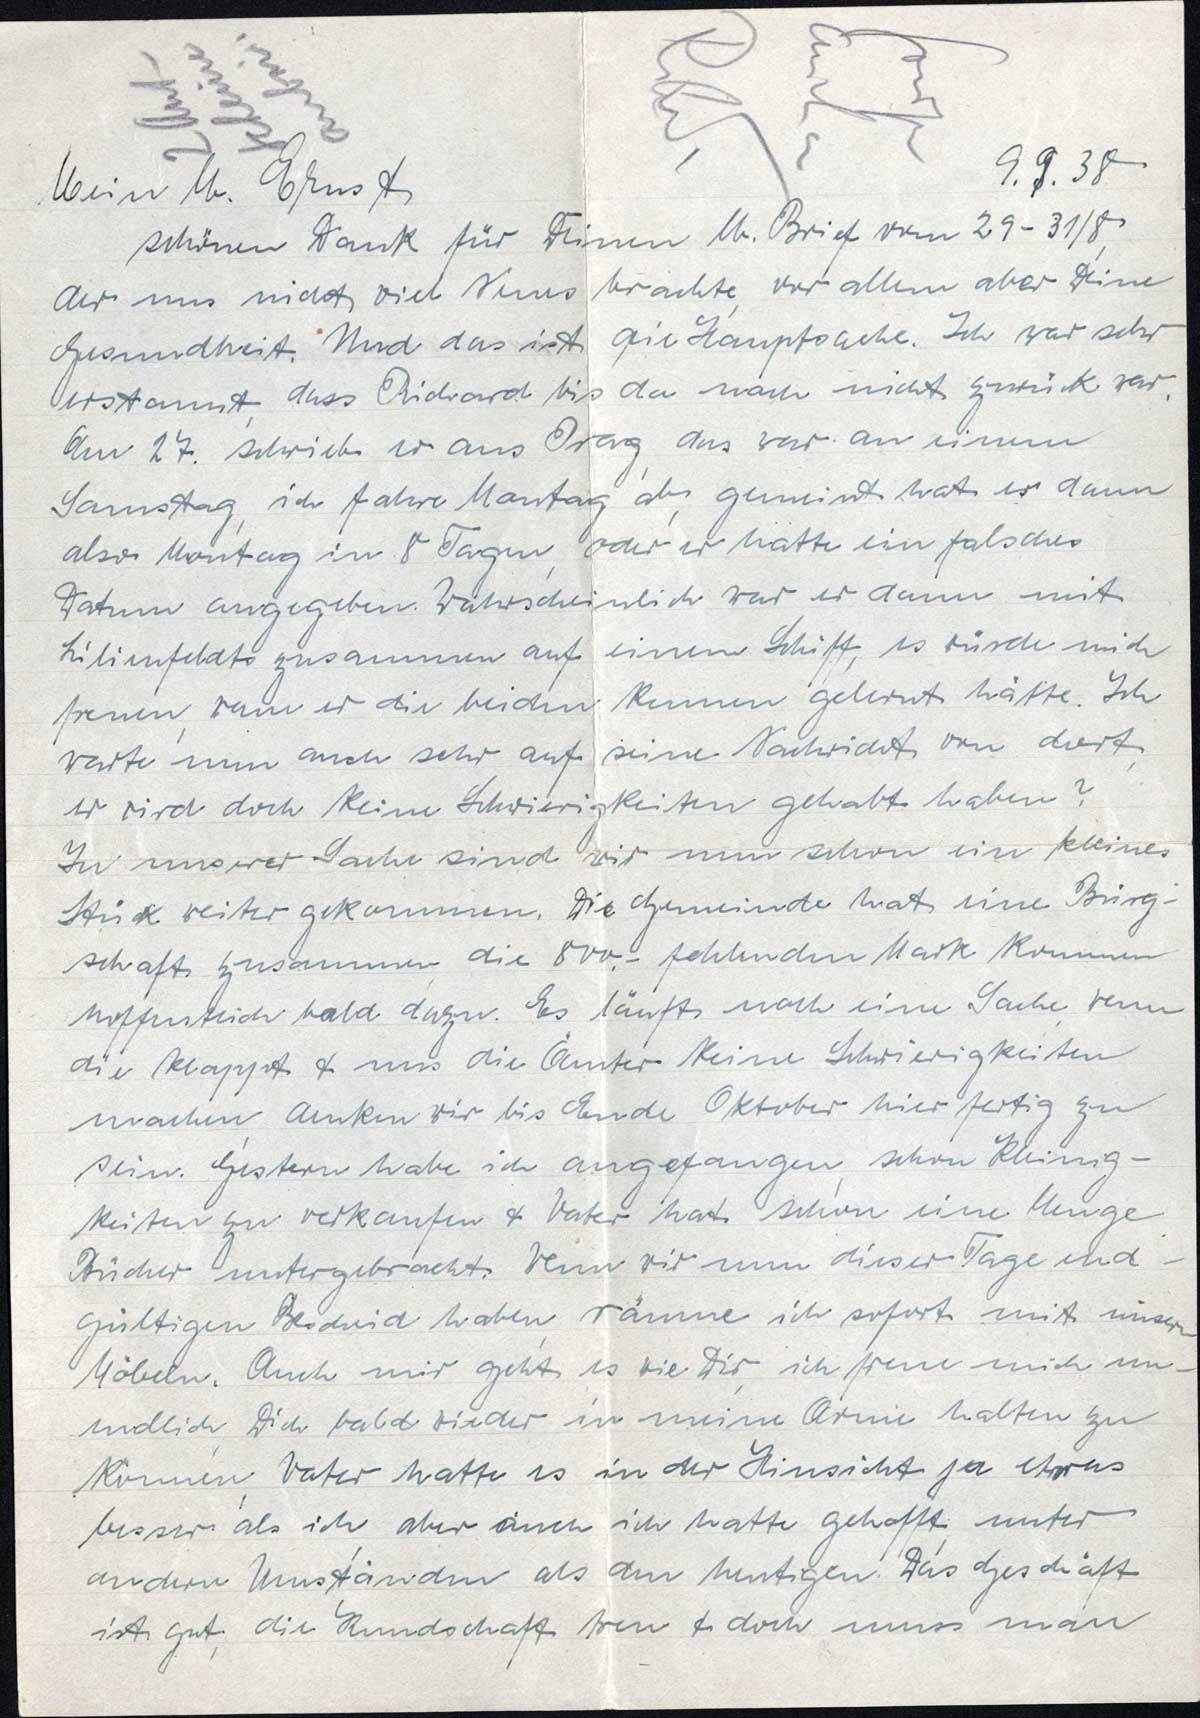 9. 9. 38
Mein lb. Ernst,
schönen Dank für Deinen lb. Brief vom 29-31/8,
der uns nicht viel Neues brachte, vor allem aber Deine
Gesundheit. Und das ist die Hauptsache. Ich war sehr
erstaunt, dass Richard bis da noch nicht zurück war.
Am 27. schrieb er aus Prag, das war an einem
Samstag, ich fahre Montag ab, gemeint hat er dann
also Montag in 8 Tagen, oder er hatte ein falsches
Datum angegeben. Wahrscheinlich war er dann mit
Lilienfelds zusammen auf einem Schiff, es würde mich
freuen, wenn er die beiden kennen gelernt hätte. Ich
warte nun auch sehr auf seine Nachricht von dort,
er wird doch keine Schwierigkeiten gehabt haben?
In unserer Sache sind wir nun schon ein kleines
Stück weiter gekommen. Die Gemeinde hat eine Bürg-
schaft zusammen, die 800,- fehlenden Mark kommen
hoffentlich bald dazu. Es läuft noch eine Sache, wenn
die klappt & uns die Ämter keine Schwierigkeiten
machen, denken wir bis Ende Oktober hier fertig zu
sein. Gestern habe ich angefangen, schon Kleinig-
keiten zu verkaufen & Vater hat schon eine Menge
Bücher untergebracht. Wenn wir nun dieser Tage end-
gültigen Bescheid haben, räume ich sofort mit unsern
Möbeln. Auch mir geht es wie Dir, ich freue mich un-
endlich, Dich bald wieder in meine Arme halten zu
können, Vater hatte es in der Hinsicht ja etwas
besser als ich, aber auch ich hatte gehofft, unter
andern Umständen als den heutigen. Das Geschäft
ist gut, die Kundschaft treu & doch muss man